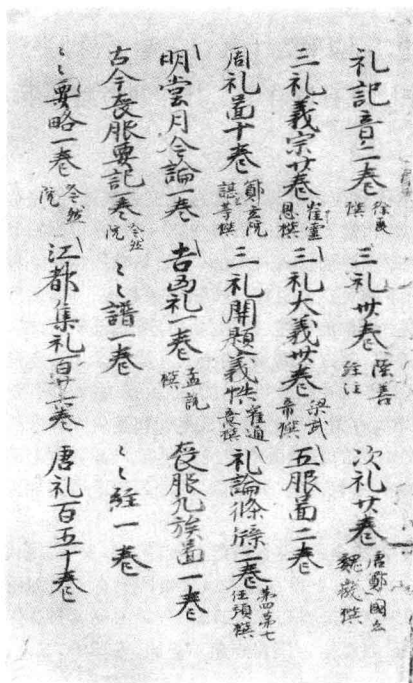 礼記音二巻 徐爰撰 三礼卅巻 陸善経注 次礼廿巻 唐鄭国公魏徴撰
三礼義宗廿巻 崔霊恩撰 三礼大義卅巻 梁武帝撰 五服啚二巻
周礼啚十巻 鄭玄阮諶等撰 三礼開題義帙 崔遍意撰 礼論條牒二巻 第四第七任預撰
明堂月令論一巻 吉凶礼一巻 孟説撰 喪服九族啚一巻
古今喪服要記一巻 冷然院 〻〻譜一巻 〻〻経一巻
〻〻要略一巻 冷然院 江都集礼百廿六巻 唐礼百五十巻